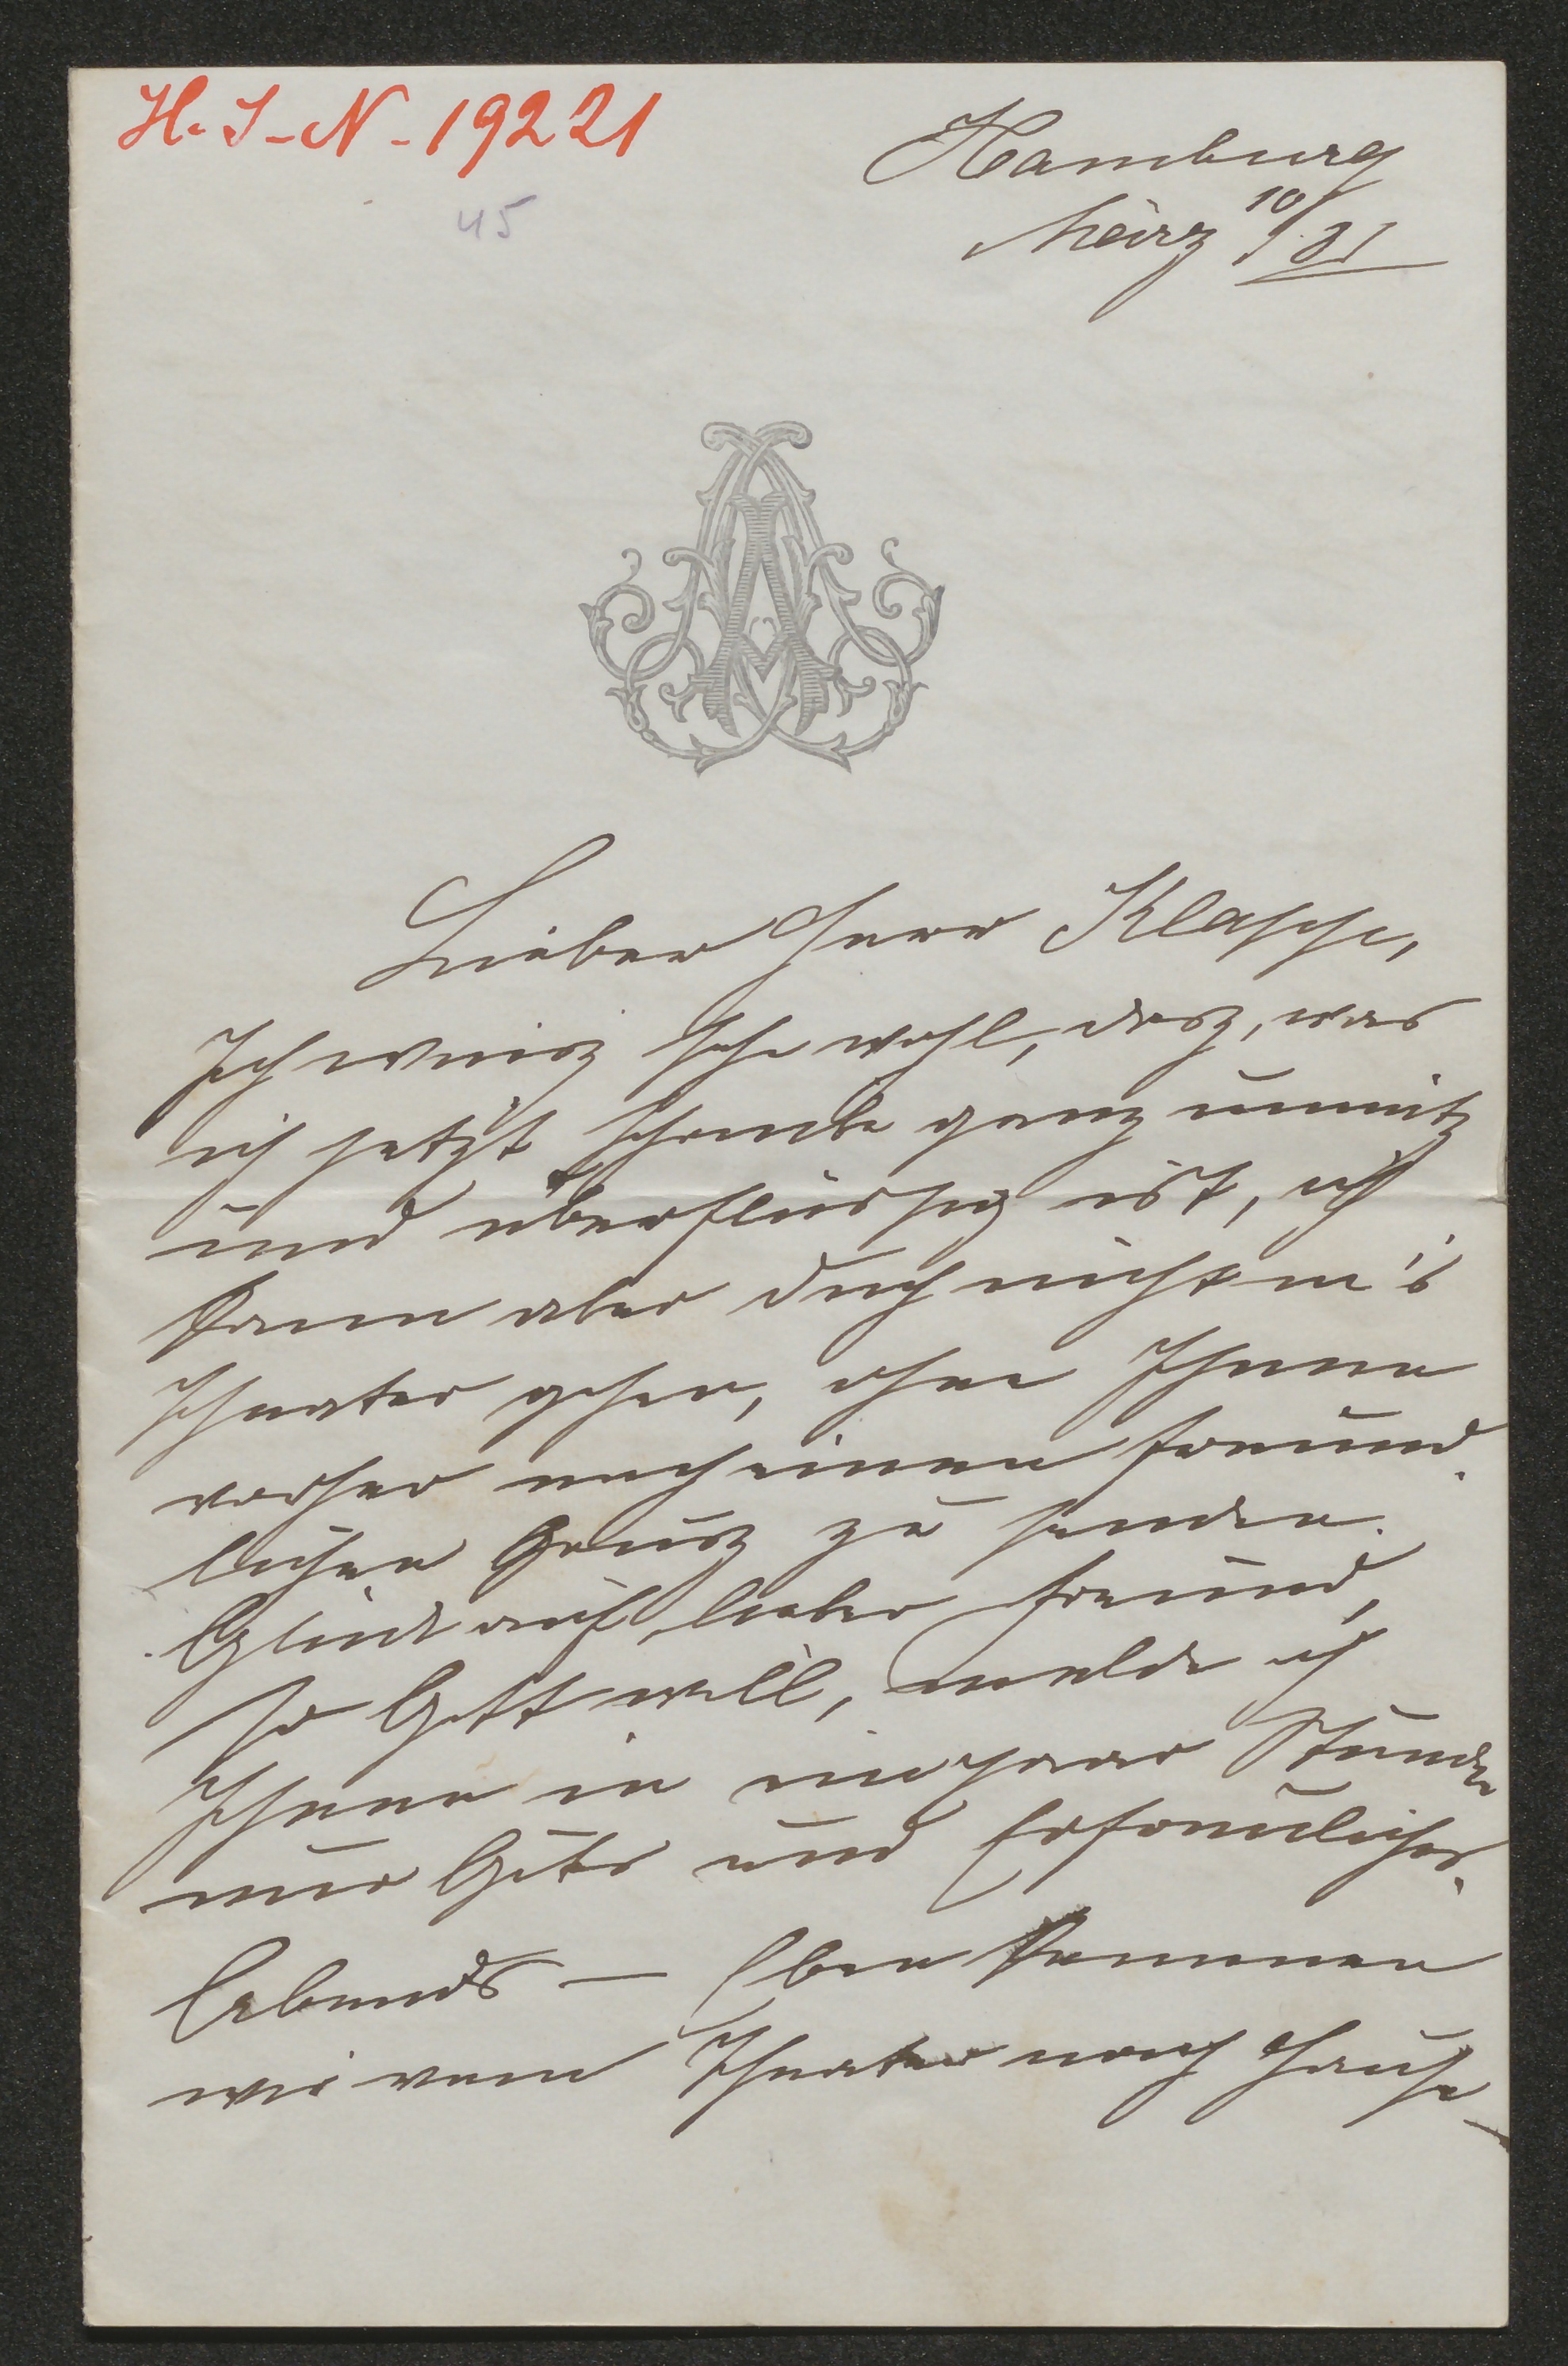 H. I-N-19221
45
Hamburg
März 10/81
AA
Lieber Herr Klapp,
Ich weisz sehr wohl, dasz, was
ich jetzt schreibe ganz unnütz
und überflüssig ist, ich
kann aber doch nicht in's
Theater gehen, ohne Ihnen
vorher noch einen freund
lichen Grusz zu senden.
Glück auf, lieber Freund,
so Gott will, melde ich
Ihnen in ein paar Stunden
nur Gutes und Erfreuliches.
Abends – Eben kommen
wir vom Theater nach Hause